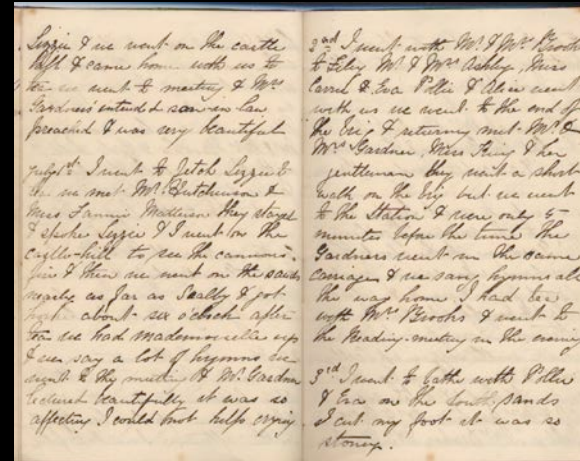 Lizzie & we went on the castle
hill & came home with us to
tea we went to meeting & Mrs
Gardners' intended son-in-law
preached & was very beautiful
July 1st I went to fetch Lizzie &
we met Mr. Hutchinson &
Miss Fannie they stayed
& spoke Lizzie & I went on the
castle-hill to see the cannons
fire & then we went on the sands
nearly as far as Scalby & got
about six o'clock after
tea we had mademoiselle up
& we say a lot of hymns we
went to the meeting & Mr. Gardner
lectured beautifully it was so
affecting I could not help crying
2nd I went with Mr. & Mrs. Brooks
to Filey Mr. & Mrs Ashby, Miss
& Eva Pollie & Alice went
with us we went to the end of
the brig & returning met Mr. &
Mrs. Gardner, Miss King & her
gentleman they went a short
walk on the brig but we went
to the Station & were only 5
minutes before the time the
Gardners went in the same
carriage & we sang hymns all
the way home I had tea
with Mrs. Brooks & went to
the Reading-meeting in the evening
3rd I went to bathe with Pollie
& Eva on the South sands
I cut my foot it was so
stoney.